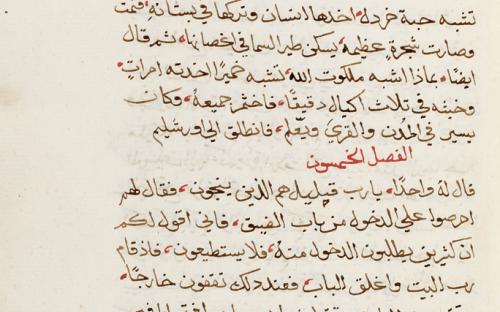 تشبه حبة خردله اخدها انسان وتركها في بستانه فنمت
وصارت شجرةٍ عظيمه يسكن طير السما في اغصانها ثم قال
ايضًا بماذا اشبه ملكوت الله تشبه خميرًا اخدته امراةٍ
وخبته في تلاث اكيال دقيقًا فاختمر جميعهُ وكان
يسير في المدن والقري ويعلم فانطلق الي اورشليم
الفصل الخمسون
قال لهُ واحدًا يا رب قليل هم الذين ينجون فقال لهم
احرصوا علي الدخول من باب الضيق فاني اقول لكم
ان كثيرين يطلبون الدخول منهُ فلا يستطيعون فاذ قام
رب البيت واغلق الباب فعند دلك تقفون خارجًا